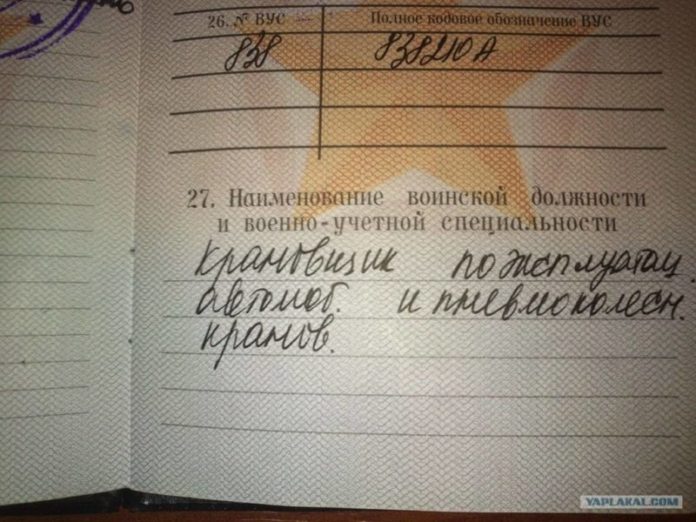 26. № ВУС Полное кодовое обозначение ВУС
838 838210А
27. Наименование воинской должности
и военно-учетной специальности
Крановщик по эксплуатац
автомоб. и пневмоколесн.
кранов.
YAPLAKAL.COM